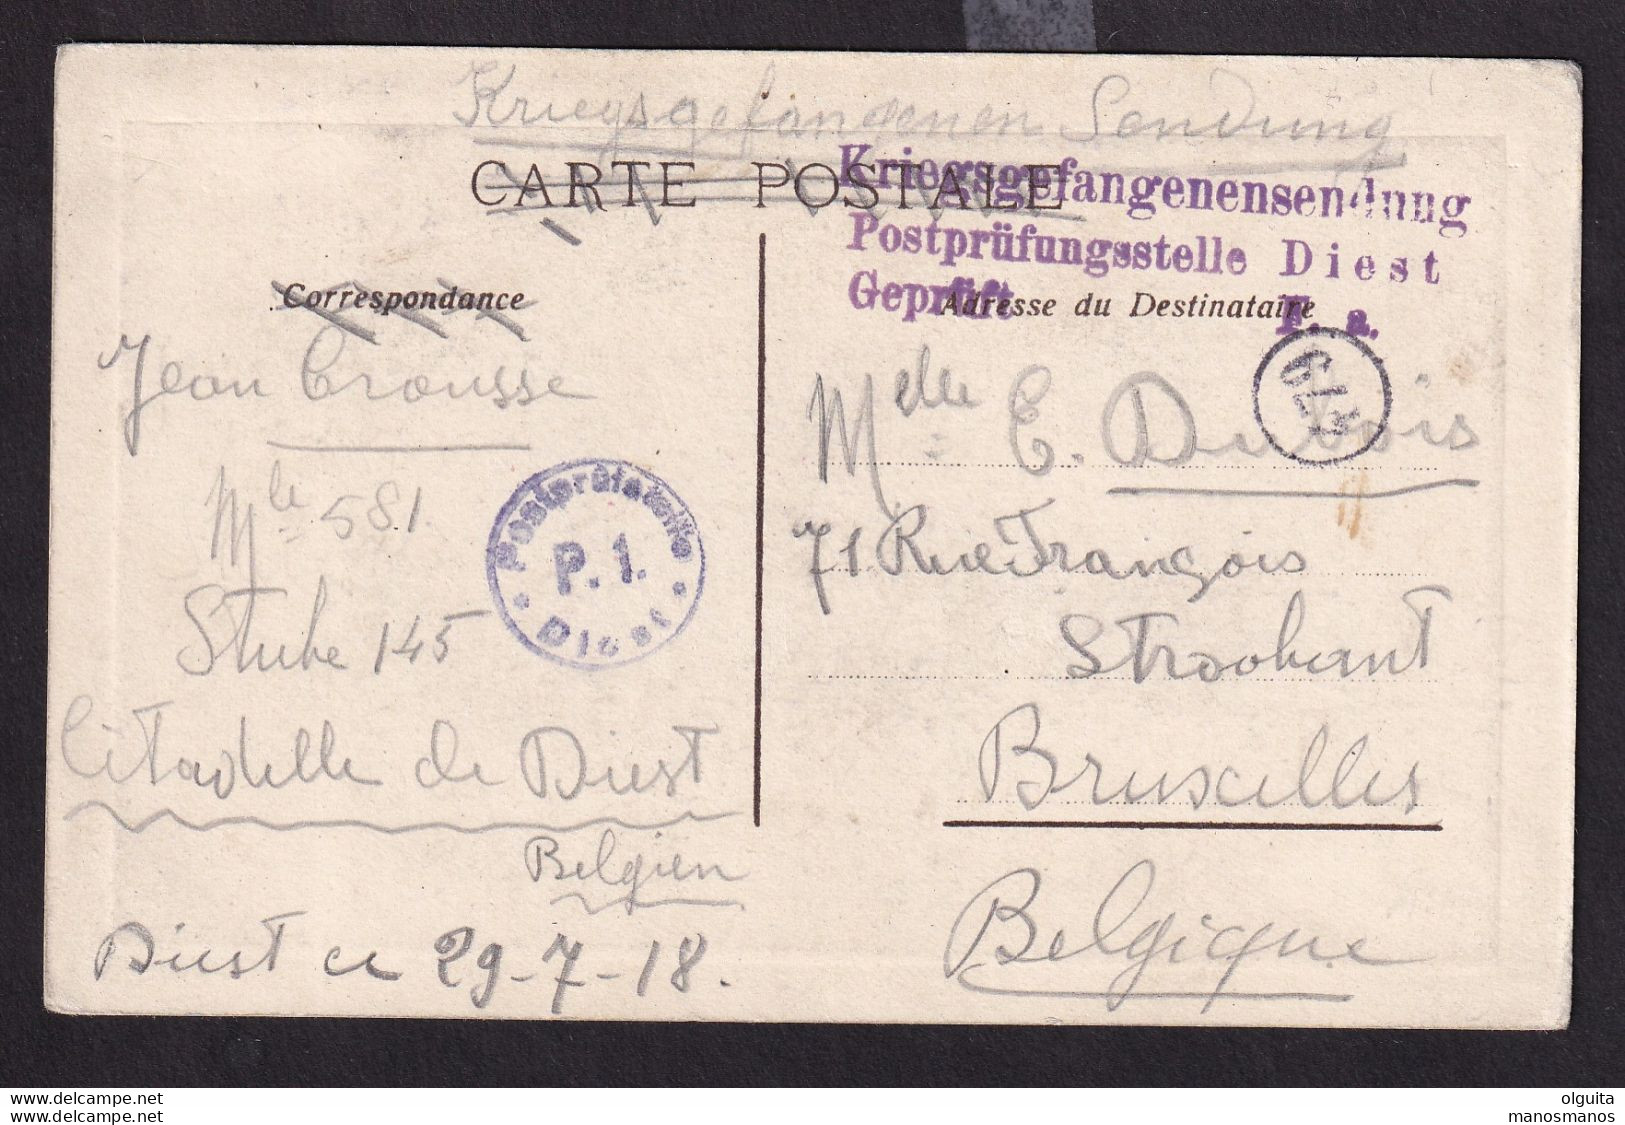 Kriegsgefangenen Sendung
CARTE POSTALE
Kriegsgefangenensendung
Postprüfungsstelle Diest
Geprüft
F. a.
Correspondance
Adresse du Destinataire
Jean Crousse
Mle 581.
Stube 145
Citadelle de Diest
Belgien
Diest ce 29-7-18.
Postprüfstelle
P. 1.
Diest
Melle E. Dubois
71 Rue François
Stroobant
Bruxelles
Belgique
delcampe.net
delcampe.net
olguita
manosmanos